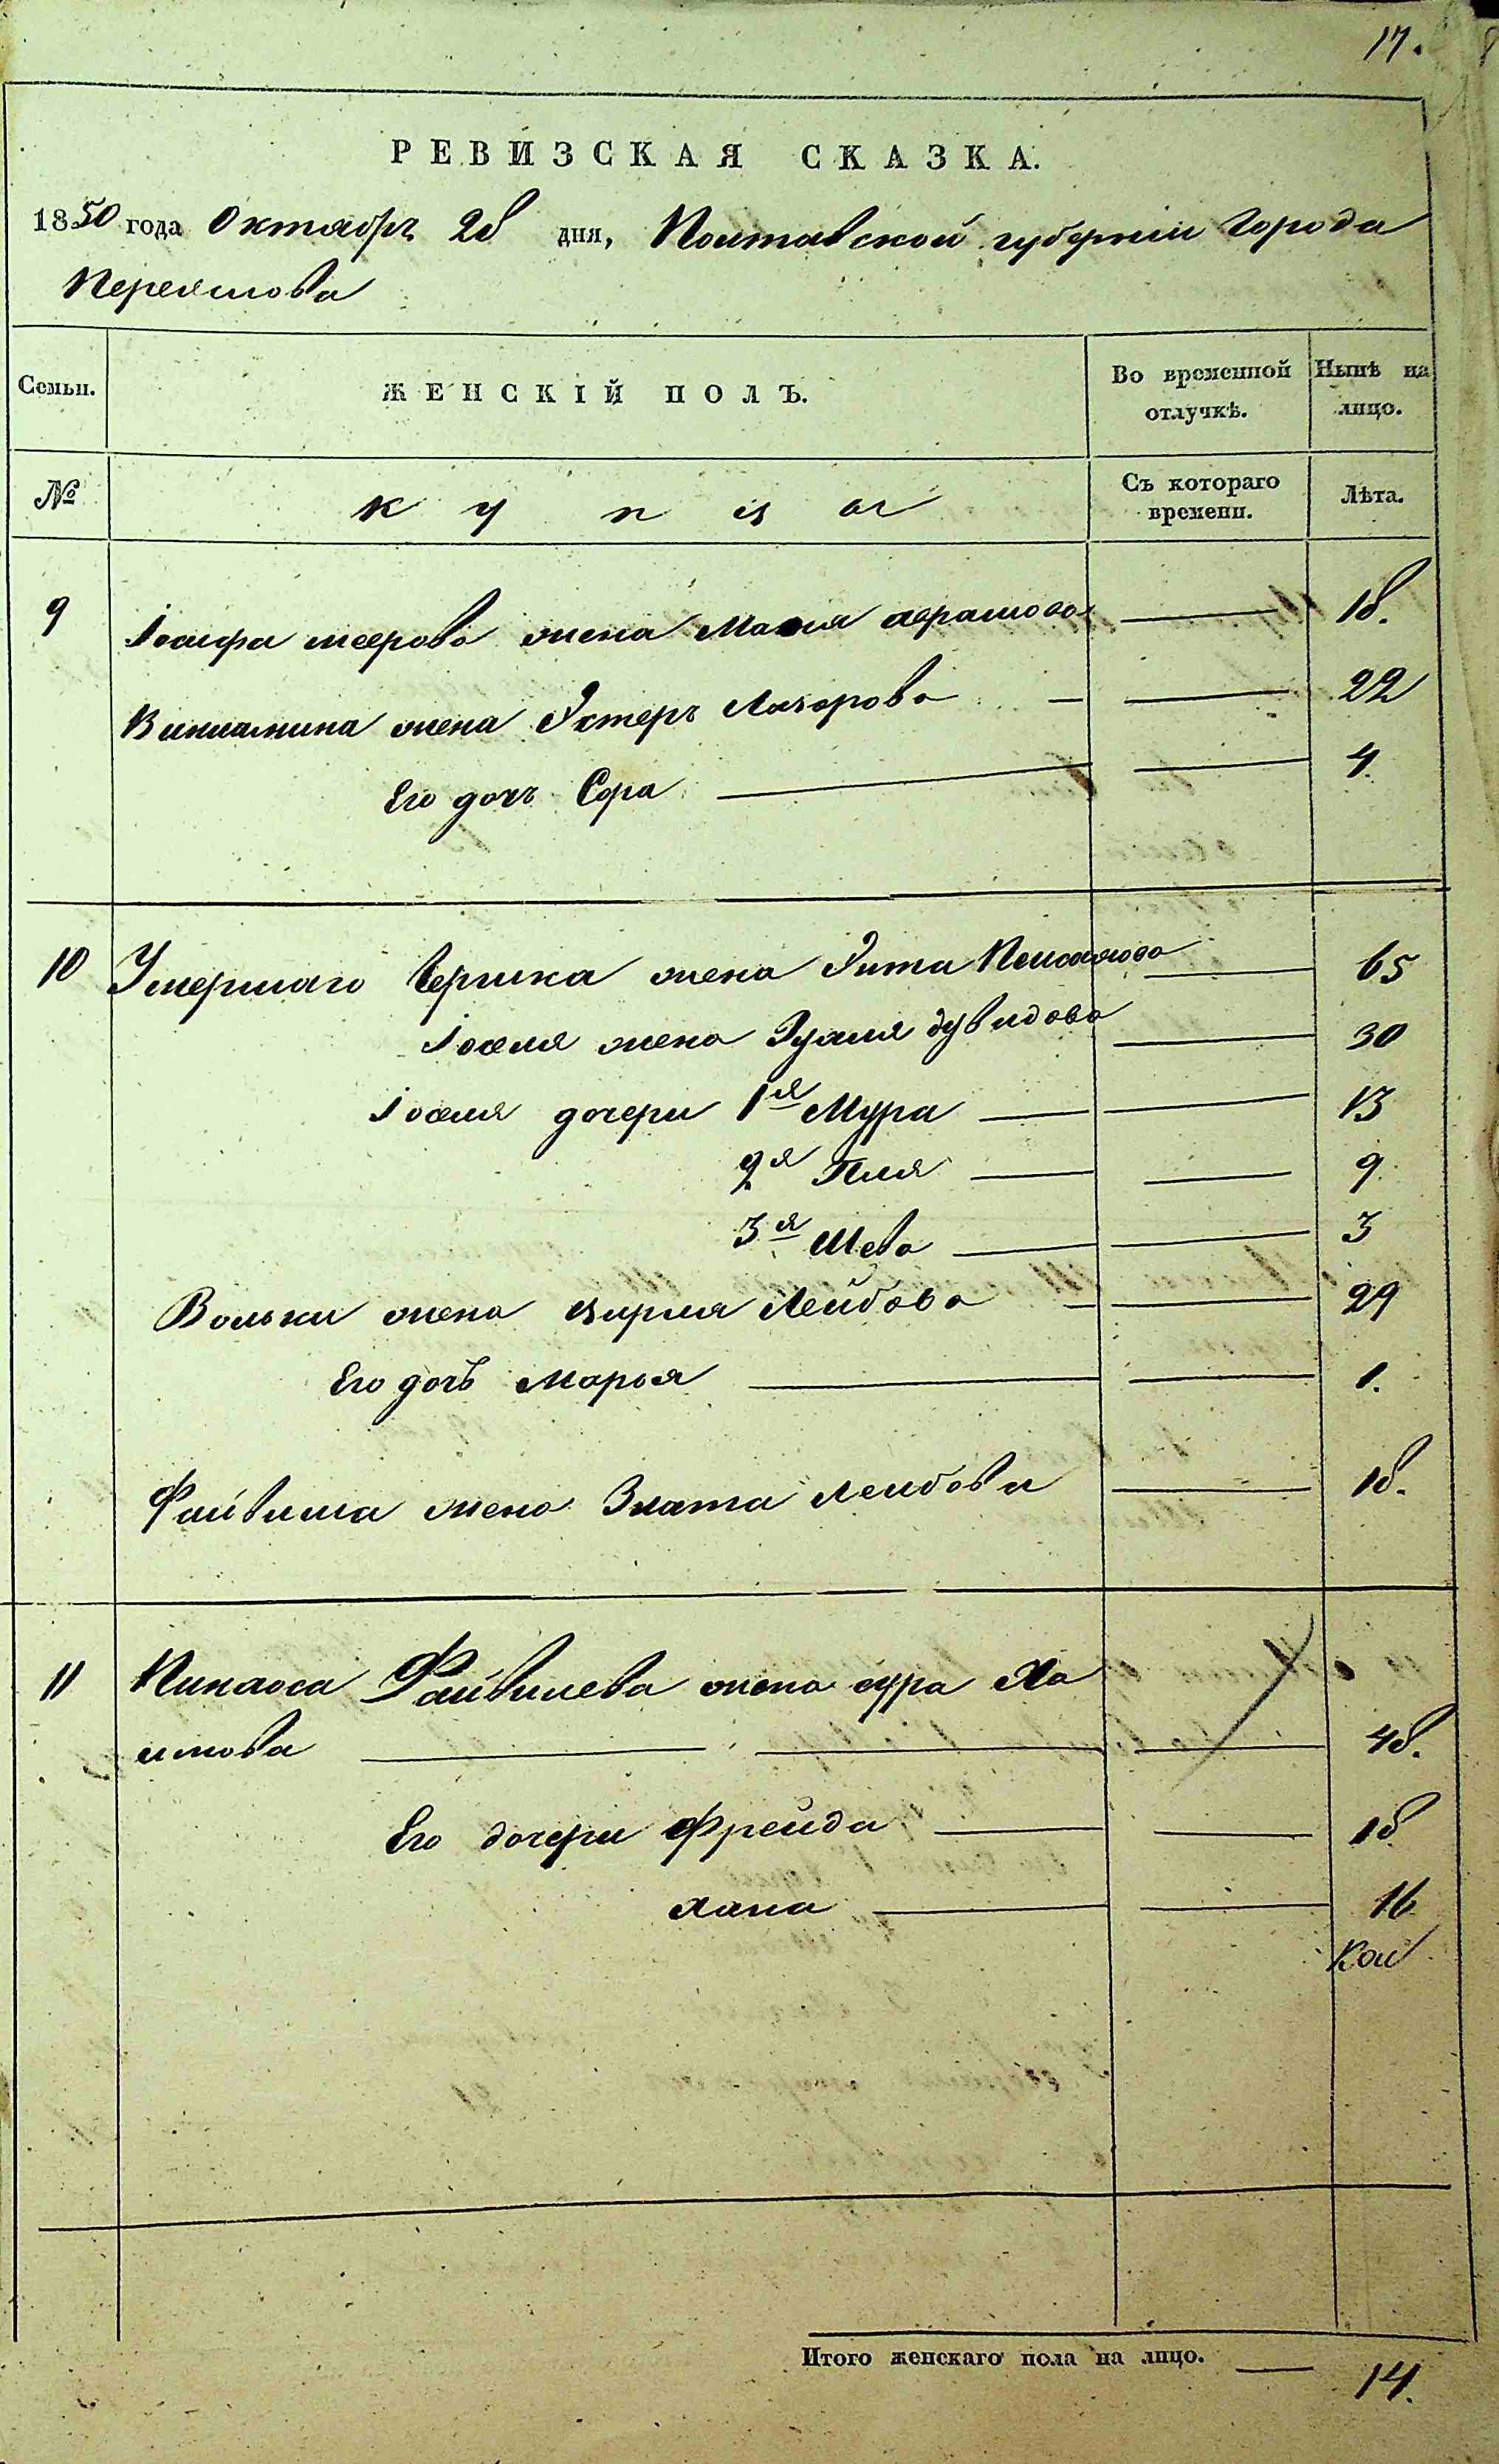 17.
РЕВИЗСКАЯ СКАЗКА.
1850 года Октября 28 дня, Полтавской губерніи Города
Переяслова
Семьи. ЖЕНСКІЙ ПОЛЪ. Во временной отлучкѣ. Нынѣ на лицо.
№ купца Съ котораго времени. Лѣта.
9 Іосифа меерова жена Абрамова 18.
Виниамина жена Эстеръ Лазорова 22
Его дочь Сора 4.
10 Умершаго Гершка жена 65
Іоселя жена дувидова 30
Іоселя дочери 1я Мура 13
2я 9
3я Шева 3
Вольки жена цирля Лейбова 29
Его дочь Марья 1.
Файвиша жена Злата Лейбова 18.
11 Пинхоса Файвишева жена сура Ха
имова 48.
Его дочери Фрейда 18
Хана 16
Итого женскаго пола на лицо. 14.